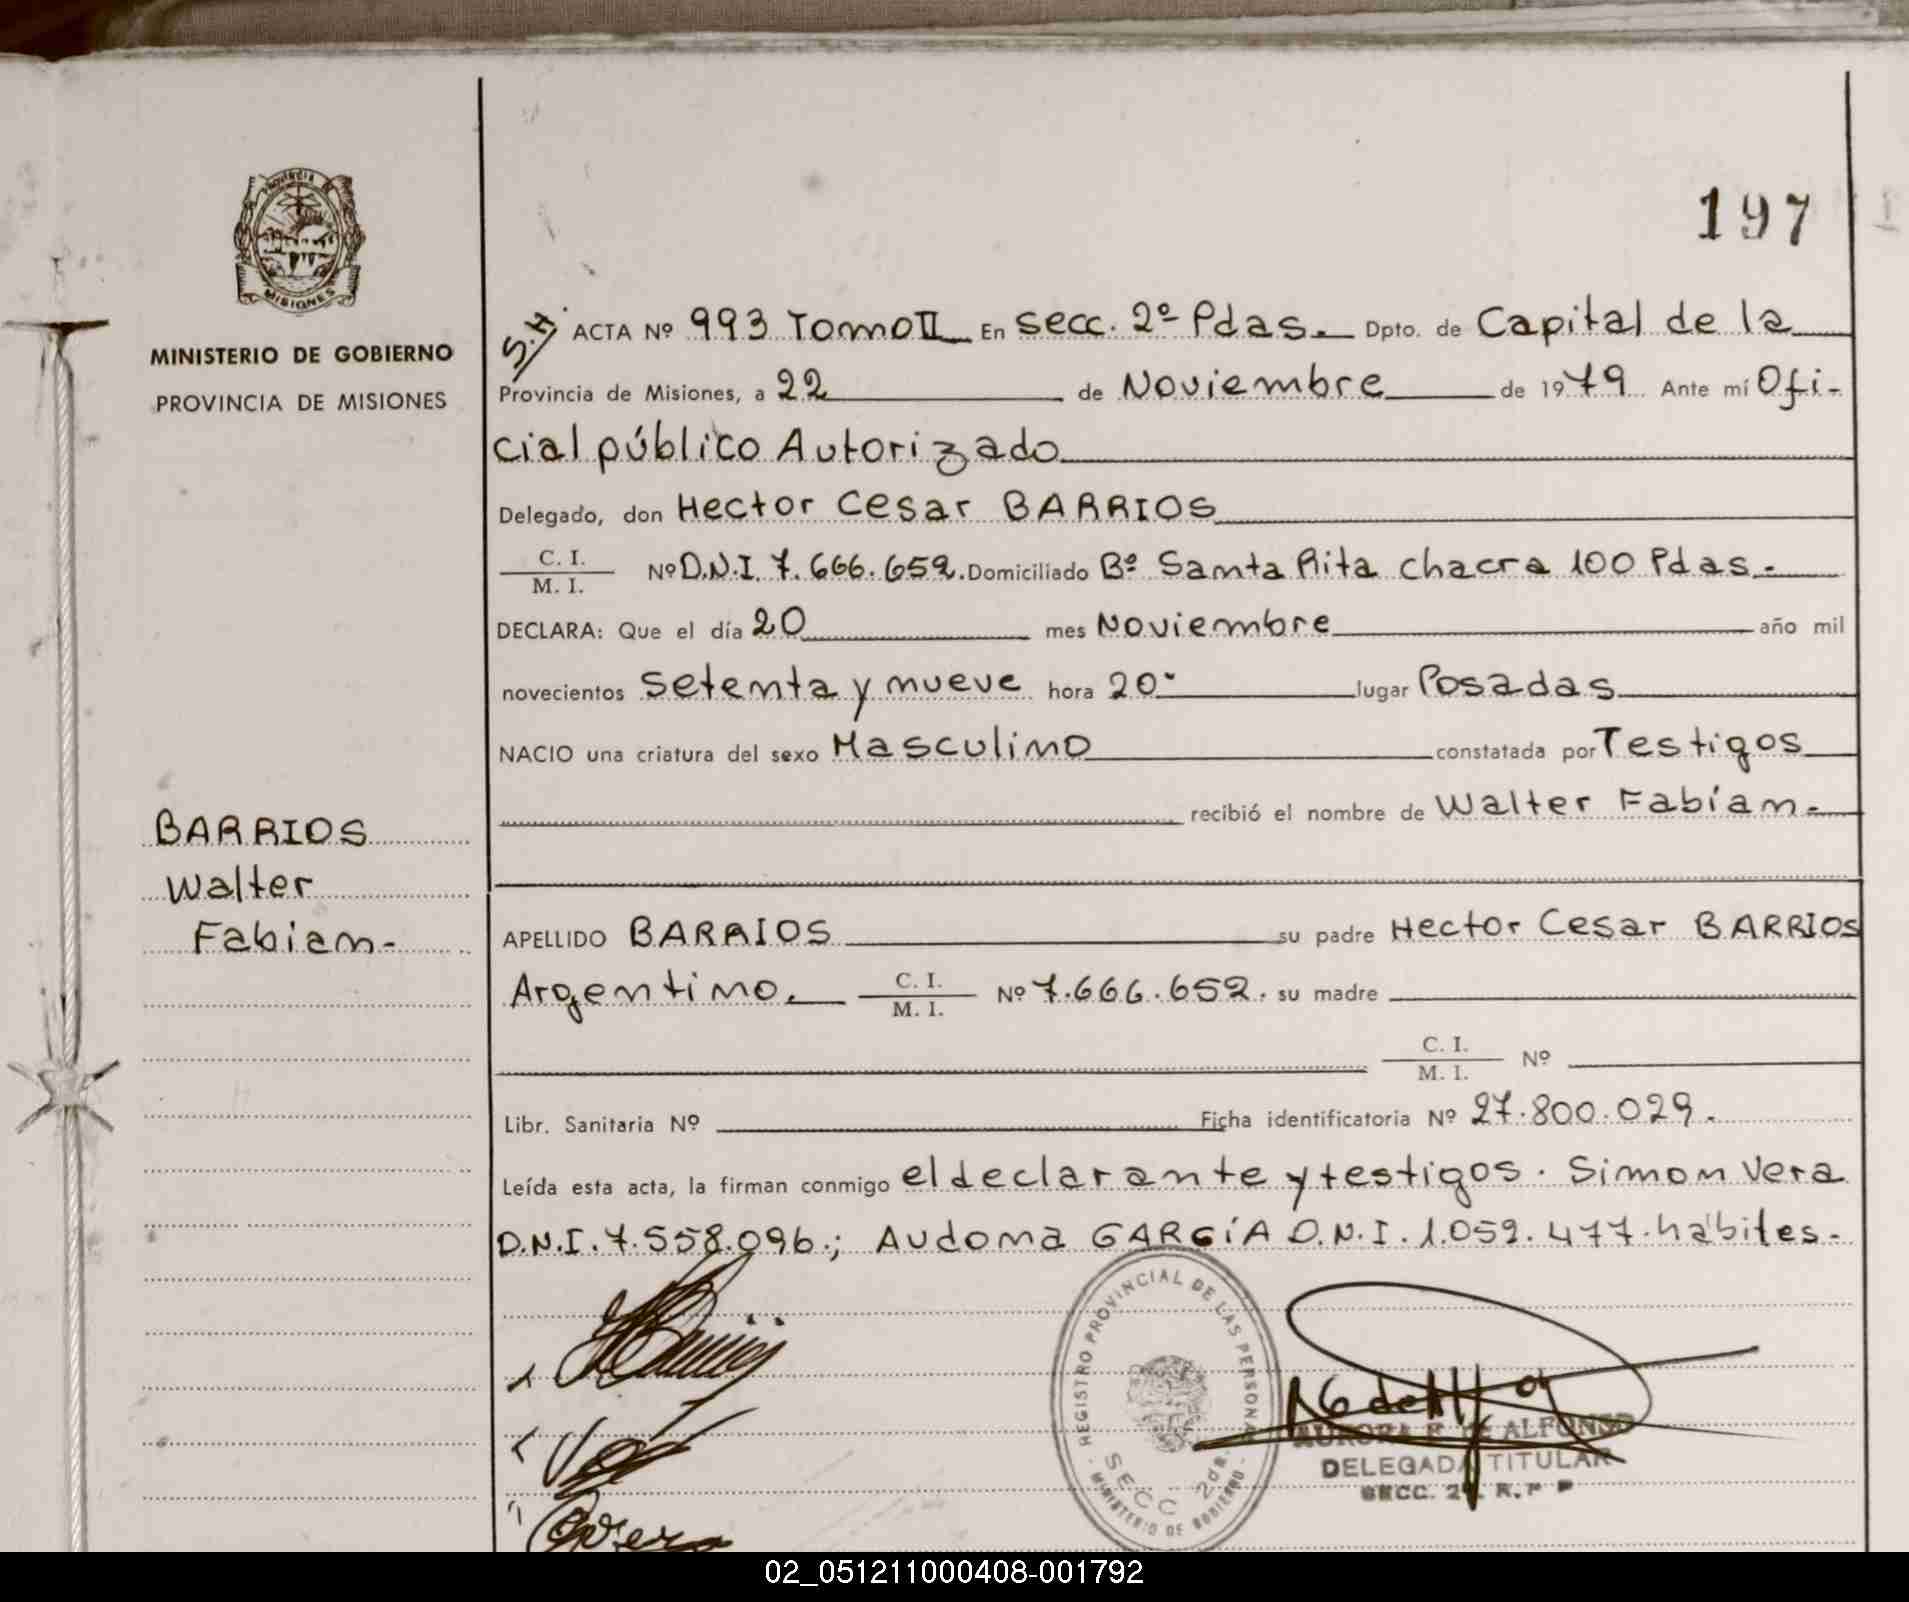 PROVINCIA DE
MISIONES
MINISTERIO DE GOBIERNO
PROVINCIA DE MISIONES
197
ACTA Nº 993 Tomo II En secc. 2º Pdas. Dpto. de Capital de la
Provincia de Misiones, a 22 de Noviembre de 1979 Ante mí Ofi-
cial público Autorizado
Delegado, don Hector Cesar BARRIOS
C. I.
M. I.
Nº D.N.I. 7.666.652. Domiciliado Bº Santa Rita chacra 100 Pdas.-
DECLARA: Que el día 20 mes Noviembre año mil
novecientos setenta y nueve hora 20· lugar Posadas
NACIO una criatura del sexo Masculino constatada por Testigos
recibió el nombre de Walter Fabián.-
BARRIOS
Walter
Fabian-
APELLIDO BARRIOS su padre Hector Cesar BARRIOS
Argentino. C. I.
M. I. Nº 7.666.652. su madre
C. I.
M. I. Nº
Libr. Sanitaria Nº Ficha identificatoria Nº 27.800.029.
Leída esta acta, la firman conmigo el declarante y testigos. Simon Vera
D.N.I. 7.558.096.; Audona GARCÍA D.N.I. 1.059.477. hábiles.-
REGISTRO PROVINCIAL DE LAS PERSONAS
SECC 2da.
- MINISTERIO DE GOBIERNO -
AURORA DE ALFONSO
DELEGADA TITULAR
SECC. 2ª. R. P. P
02_051211000408-001792